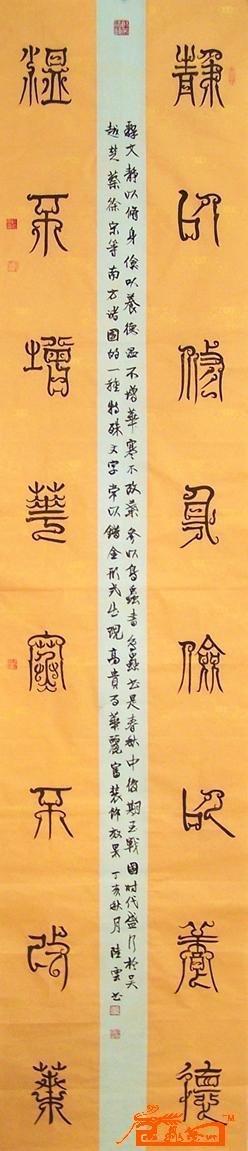 静以修身俭以养德
释文静以修身俭以养德温不增华寒不改叶参以鸟虫书鸟虫书是春秋中后期至战国时代盛行于吴
越楚蔡徐宋等南方诸国的一种特殊文字常以错金形式出现高贵而华丽富装饰效果丁亥秋月陆云书
温不增华寒不改叶